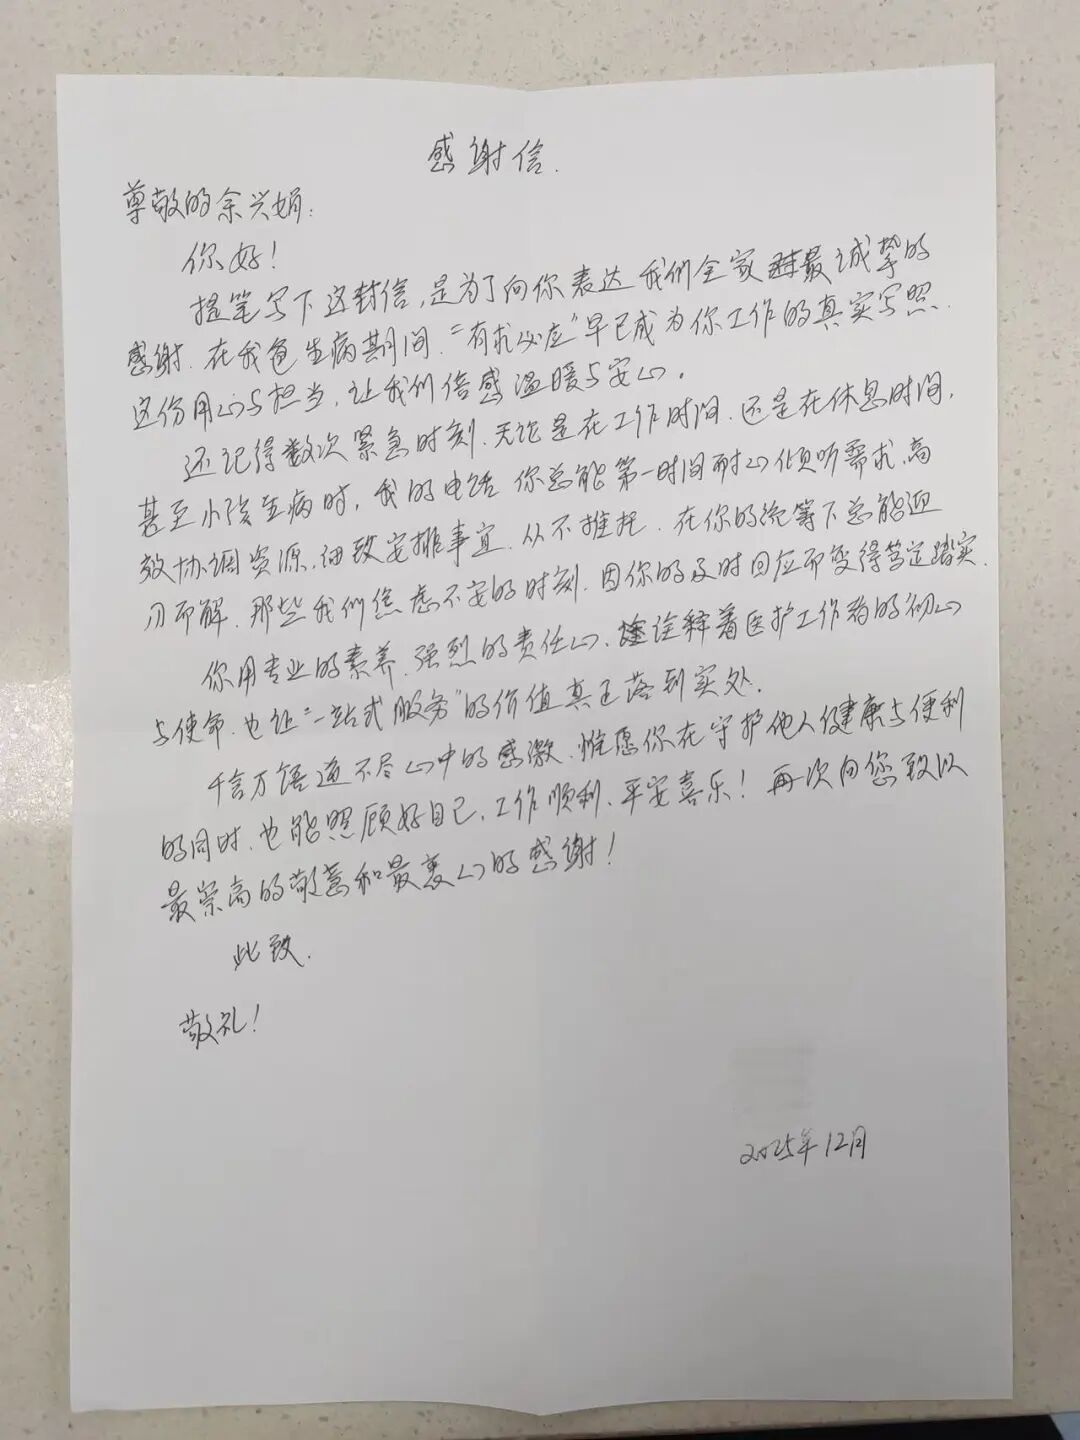 感谢信.
尊敬的余兴娟:
你好!
提笔写下这封信,是为了向你表达我们全家最诚挚的
感谢.在我爸生病期间.“有求必应”早已成为你工作的真实写照.
这份用心与担当,让我们倍感温暖与安心。
还记得数次紧急时刻.无论是在工作时间.还是在休息时间,
甚至小孩生病时,我的电话你总能第一时间耐心倾听需求,高
效协调资源,细致安排事宜.从不推托.在你的统筹下总能迎
刃而解.那些我们焦虑不安的时刻.因你的及时回应而变得笃定踏实.
你用专业的素养.强烈的责任心、诠释着医护工作者的初心
与使命.也让“一站式服务”的价值真正落到实处.
千言万语道不尽心中的感激.惟愿你在守护他人健康与便利
的同时.也能照顾好自己.工作顺利、平安喜乐!再次向您致以
最崇高的敬意和最衷心的感谢!
此致.
敬礼!
2025年12月